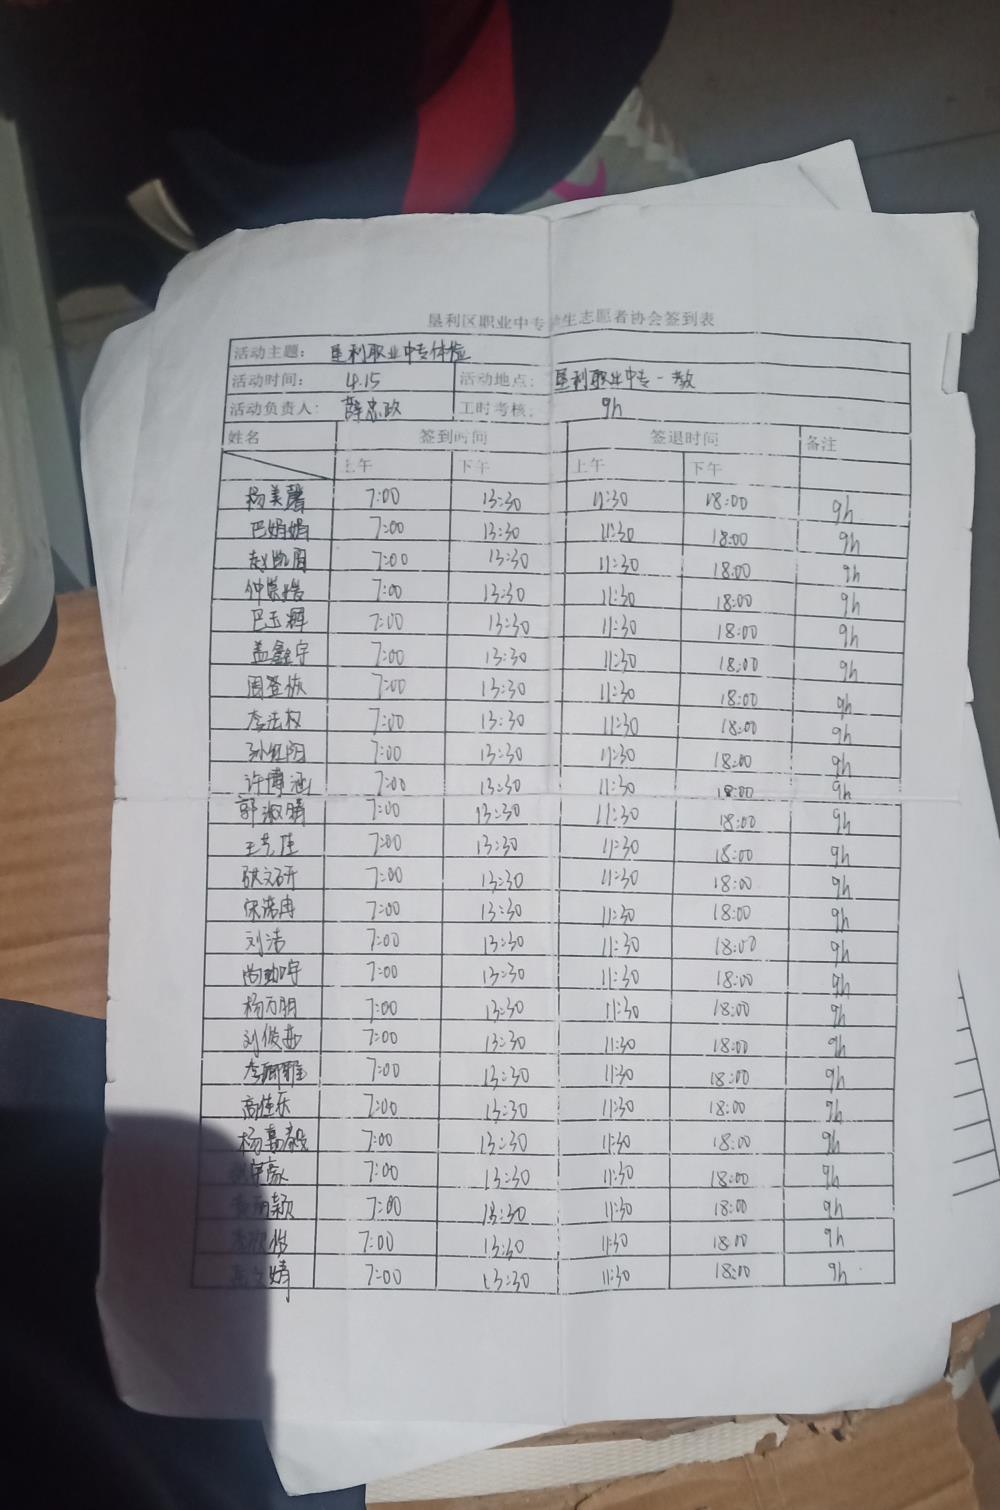 垦利区职业中专学生志愿者协会签到表
活动主题： 垦利职业中专体检
活动时间： 4.15 活动地点： 垦利职业中专一教
活动负责人： 薛忠政 工时考核： 9h
姓名 签到时间 签退时间 备注
上午 下午 上午 下午
杨美馨 7:00 13:30 11:30 18:00 9h
巴娟娟 7:00 13:30 11:30 18:00 9h
赵凯周 7:00 13:30 11:30 18:00 9h
仲崇皓 7:00 13:30 11:30 18:00 9h
巴玉辉 7:00 13:30 11:30 18:00 9h
盖鑫宇 7:00 13:30 11:30 18:00 9h
周 7:00 13:30 11:30 18:00 9h
李法权 7:00 13:30 11:30 18:00 9h
孙红阳 7:00 13:30 11:30 18:00 9h
许博涵 7:00 13:30 11:30 18:00 9h
郭淑晴 7:00 13:30 11:30 18:00 9h
王克佳 7:00 13:30 11:30 18:00 9h
张文研 7:00 13:30 11:30 18:00 9h
宋诺冉 7:00 13:30 11:30 18:00 9h
刘洁 7:00 13:30 11:30 18:00 9h
尚 宇 7:00 13:30 11:30 18:00 9h
杨万朋 7:00 13:30 11:30 18:00 9h
刘俊茹 7:00 13:30 11:30 18:00 9h
李 雅 7:00 13:30 11:30 18:00 9h
高佳乐 7:00 13:30 11:30 18:00 9h
杨嘉毅 7:00 13:30 11:30 18:00 9h
7:00 13:30 11:30 18:00 9h
颖 7:00 13:30 11:30 18:00 9h
7:00 13:30 11:30 18:00 9h
婧 7:00 13:30 11:30 18:00 9h